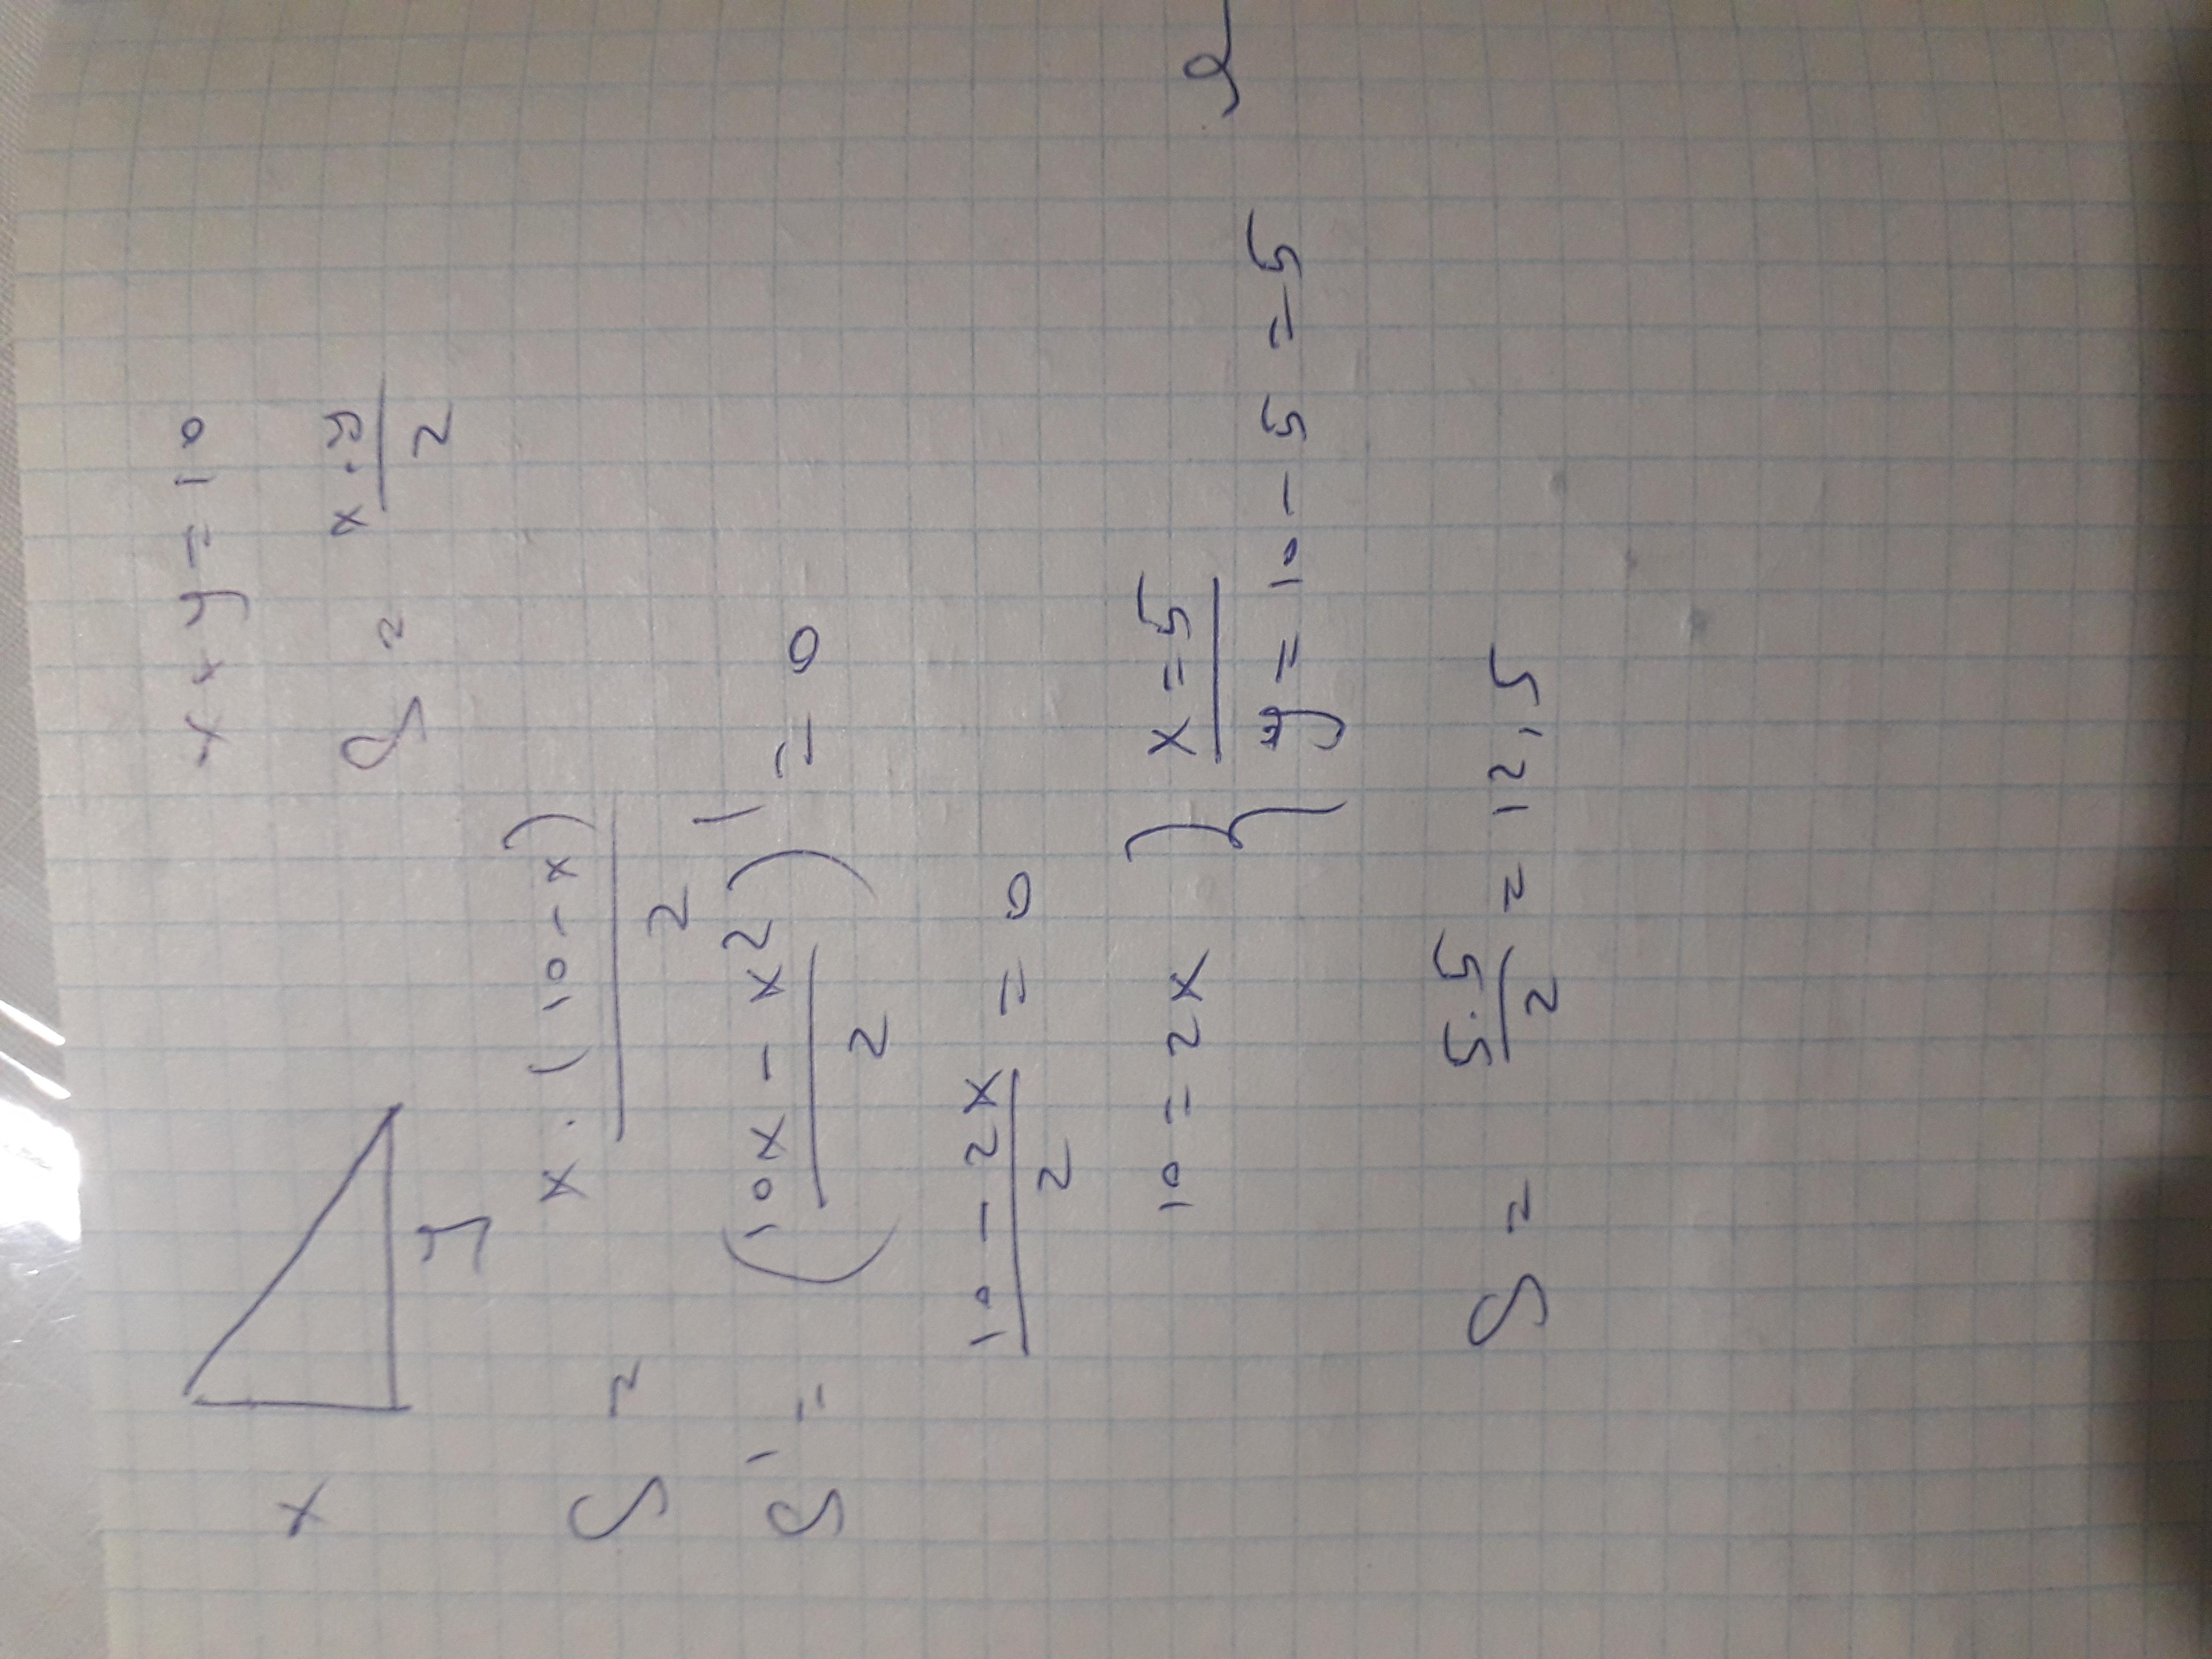 x + y = 10
x
S = x·y/2
y
S = x·(10-x)/2
S' = (10x - x²/2)' = 0
10 - 2x/2 = 0
10 = 2x } x = 5
y = 10 - 5 = 5
S = 5·5/2 = 12,5